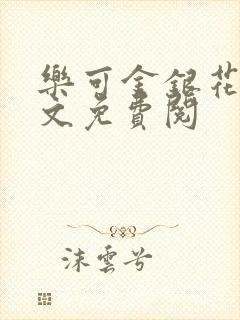 樂可金銀花
文免費閱
沫雲兮